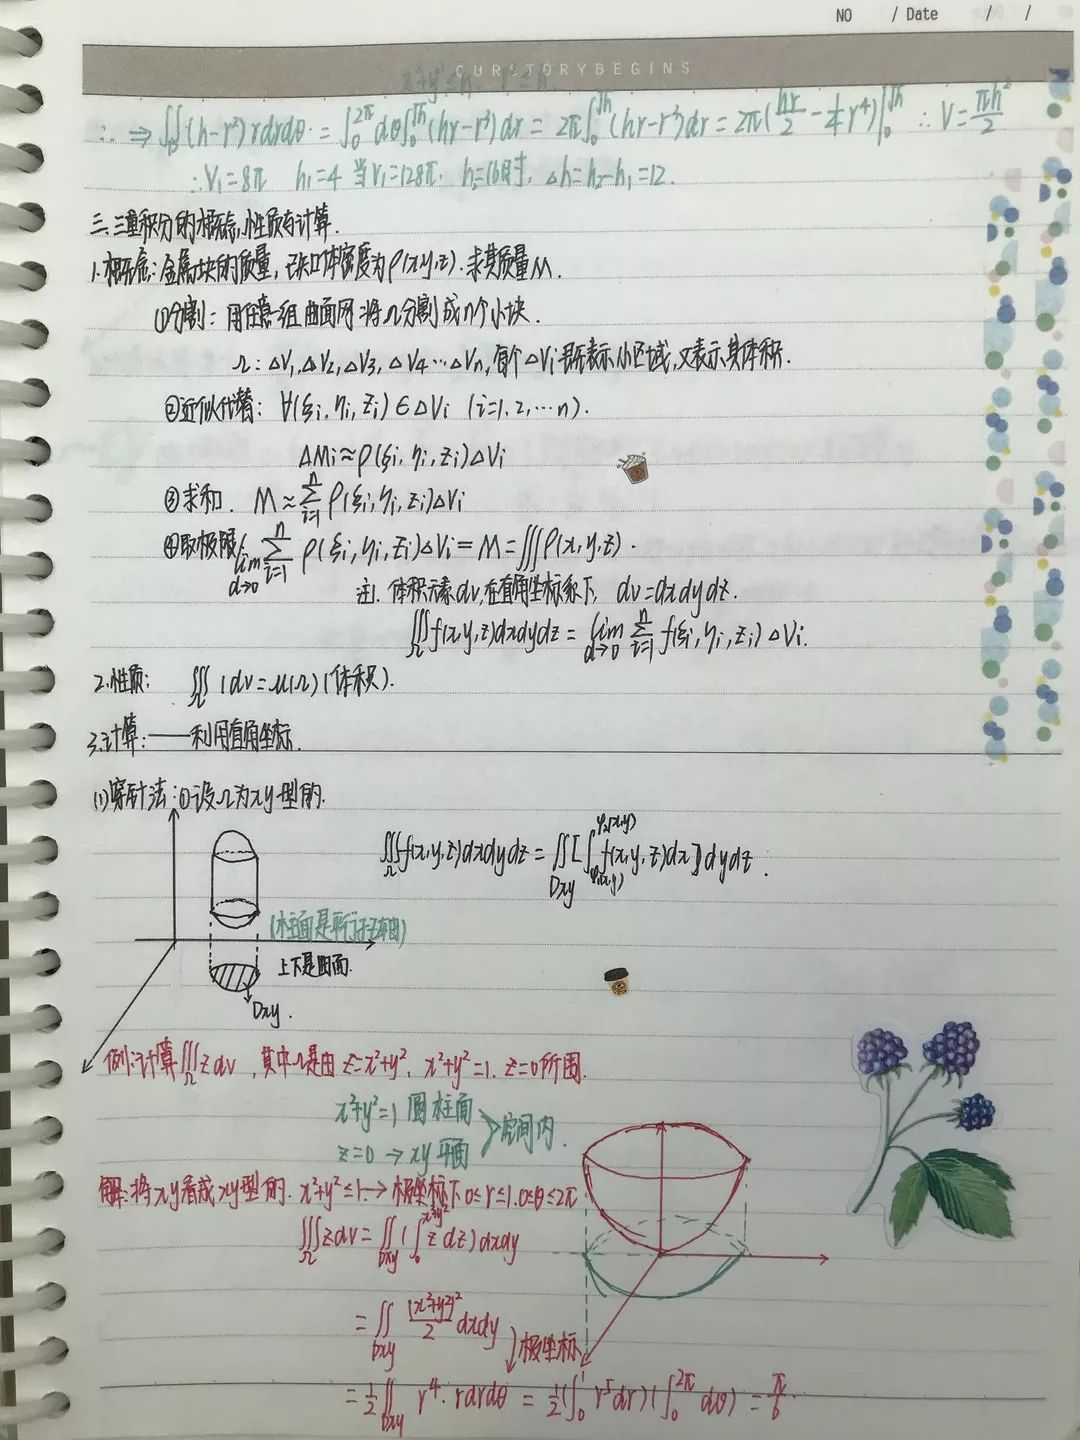 NO / Date / /
CURSTORYBEGINS
x²+y²≤h r²≤h
∴ ⇒ ∬_D (h-r²)rdrdθ = ∫₀^{2π}dθ∫₀^{√h}(hr-r³)dr = 2π∫₀^{√h}(hr-r³)dr = 2π(hr/2 - 1/4 r⁴)|₀^{√h} ∴ V = πh²/2
∴V₁=8π h₁=4 当V₁=128π. h₂=16时, Δh=h₂-h₁=12.
三.三重积分的概念,性质与计算.
1.概念:金属块的质量,已知体密度为ρ(x,y,z).求其质量M.
①分割:用任意组曲面网将Ω分割成n个小块.
Ω:ΔV₁,ΔV₂,ΔV₃,ΔV₄…ΔVn,每个ΔVi既表示小区域,又表示其体积.
②近似代替: ∀(ξi,ηi,zi)∈ΔVi (i=1,2,…n).
ΔMi≈ρ(ξi,ηi,zi)ΔVi
③求和. M≈∑_{i=1}^{n} ρ(ξi,ηi,zi)ΔVi
④取极限 lim_{d→0} ∑_{i=1}^{n} ρ(ξi,ηi,zi)ΔVi = M = ∭ρ(x,y,z).
注1.体积元素dv,在直角坐标系下, dv=dxdydz.
∭_Ω f(x,y,z)dxdydz = lim_{d→0} ∑_{i=1}^{n} f(ξi,ηi,zi)ΔVi.
2.性质: ∭_Ω 1dv=μ(Ω)(体积).
3.计算:——利用直角坐标.
(1)穿针法:①设Ω为xy型的.
∭_Ω f(x,y,z)dxdydz = ∬_{Dxy}[∫_{φ₁(x,y)}^{φ₂(x,y)} f(x,y,z)dx]dydz.
(柱面是平行于z轴的)
上下是曲面.
Dxy.
例:计算∭_Ω zdv,其中Ω是由z=x²+y², x²+y²=1. z=0所围.
x²+y²=1 圆柱角
z=0 → xy平面
空间内.
解:将xy看成xy型的. x²+y²≤1 → 极坐标下0≤r≤1.0≤θ≤2π
∭_Ω zdv = ∬_{Dxy}(∫₀^{x²+y²} z dz)dxdy
= ∬_{Dxy} (x²+y²)²/2 dxdy
↓极坐标
= 1/2 ∬_{Dxy} r⁴·rdrdθ = 1/2(∫₀¹ r⁵dr)(∫₀^{2π} dθ) = π/6.